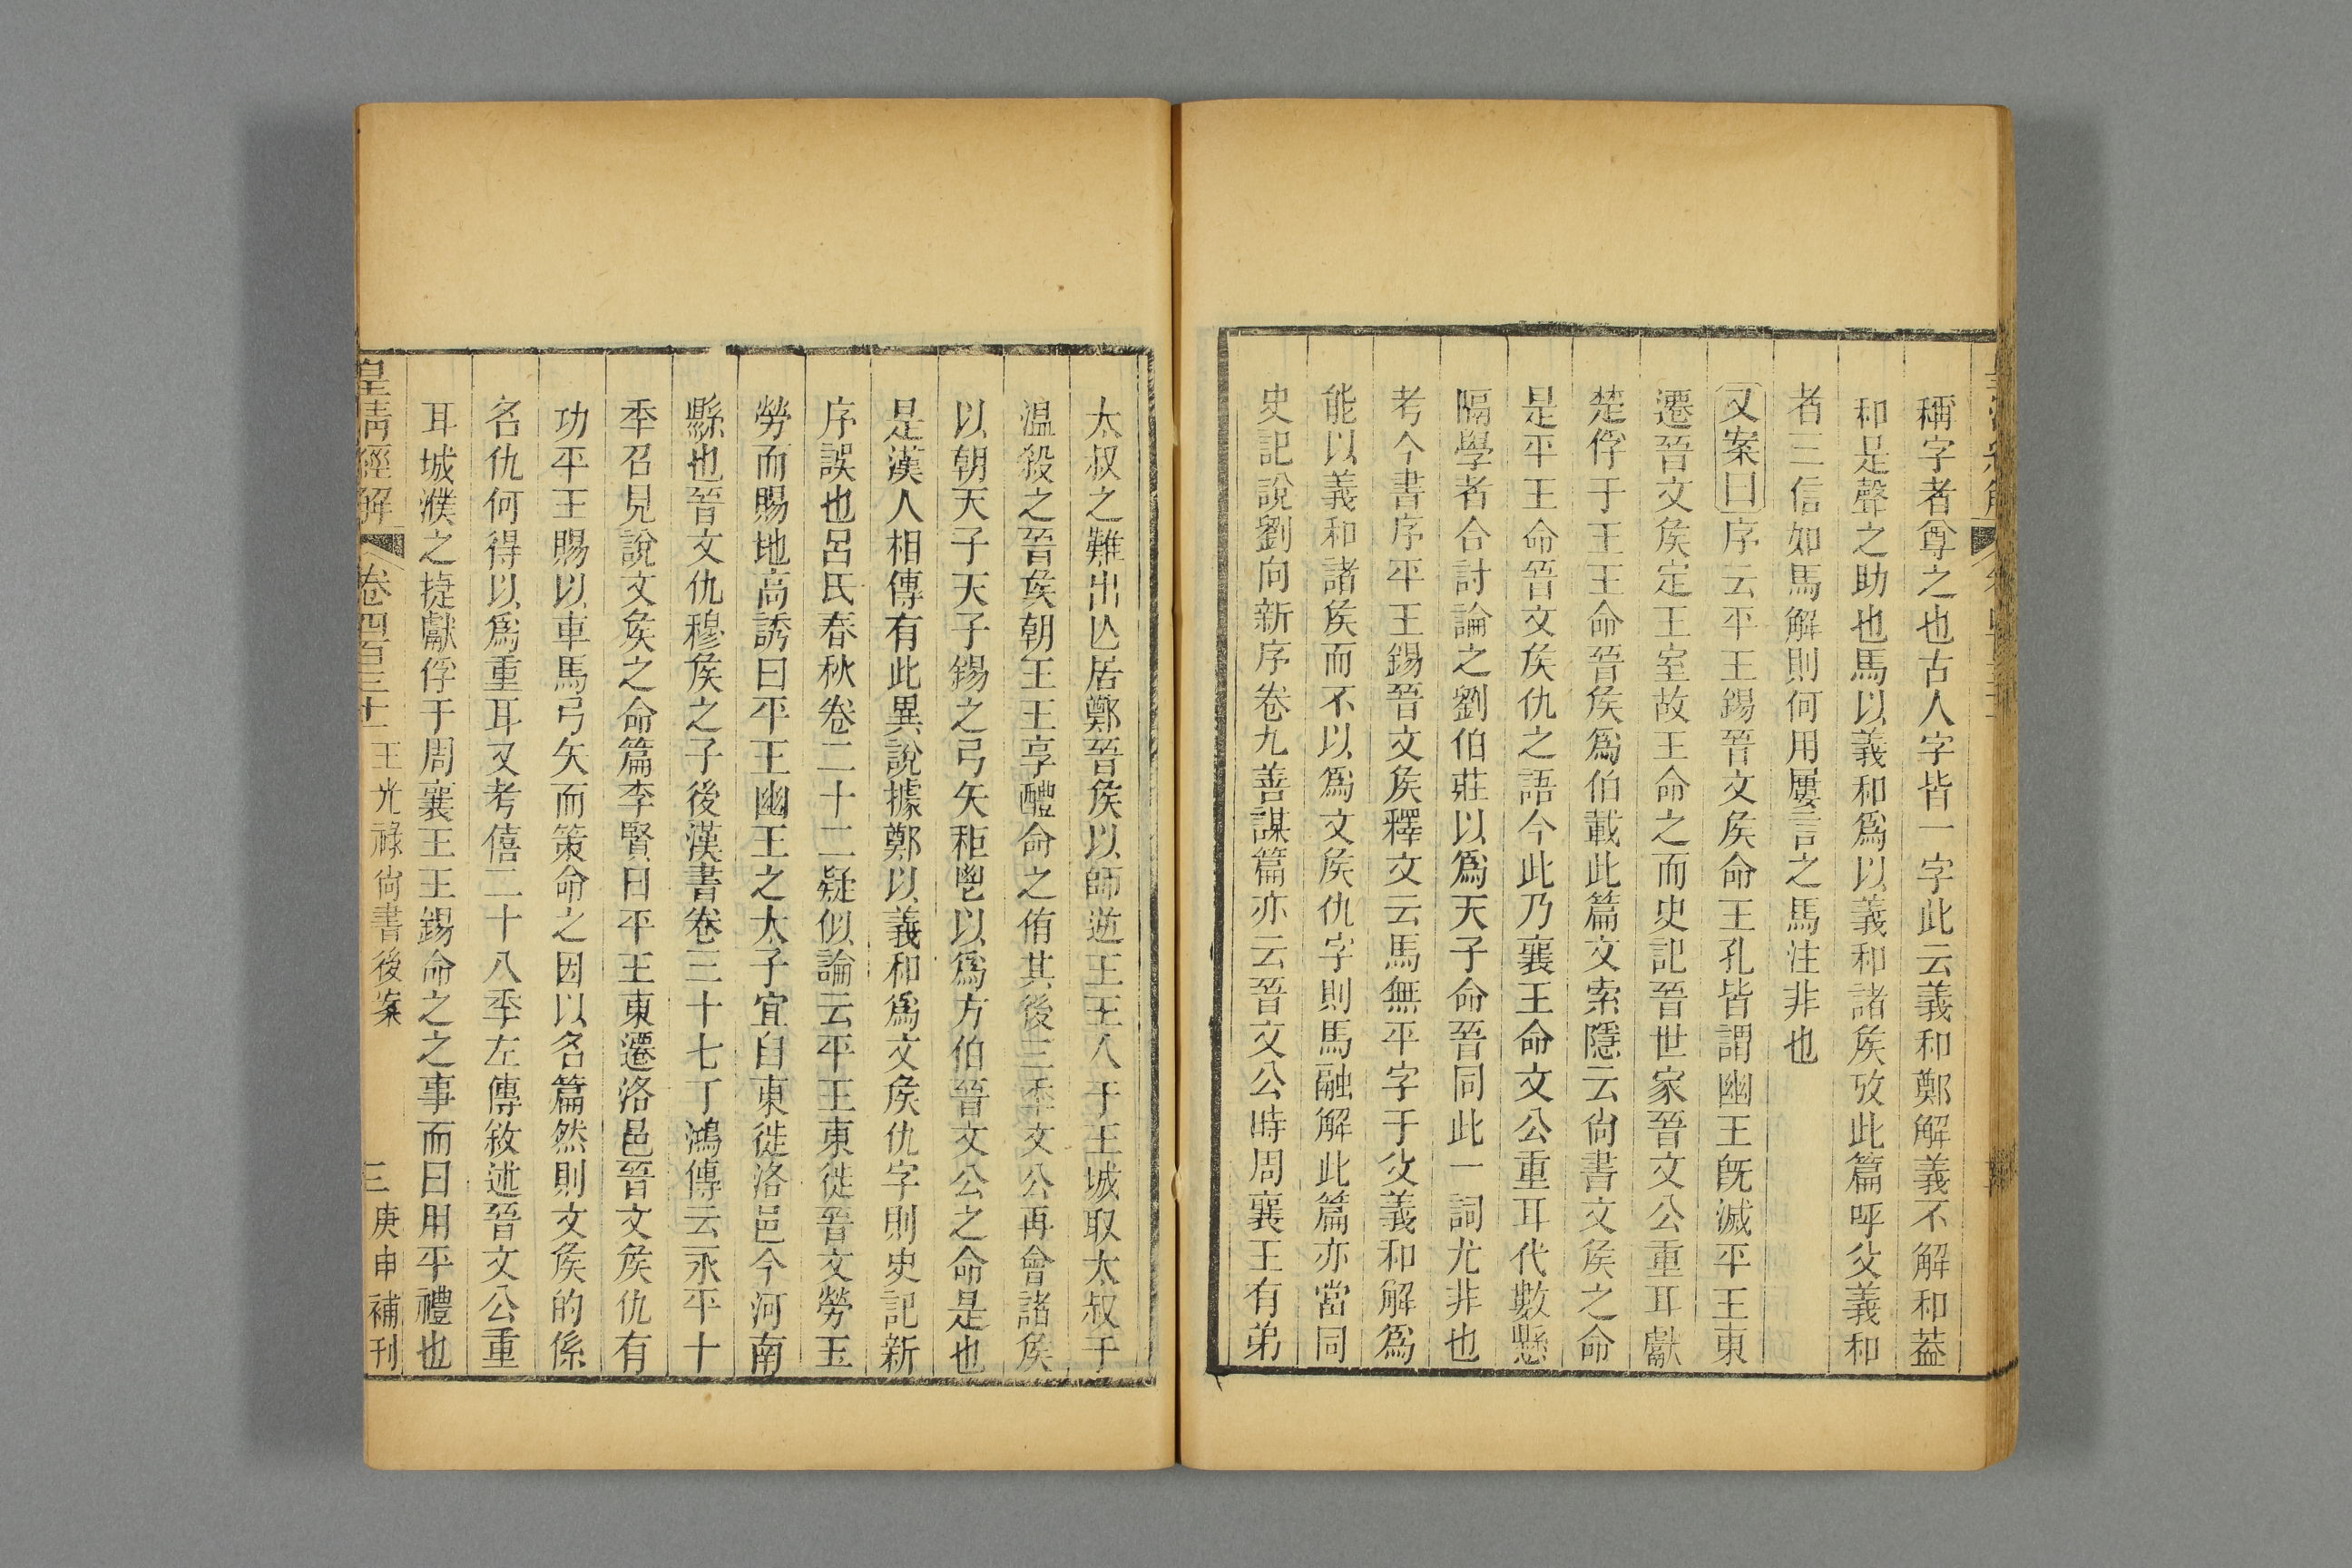 稱字者尊之也古人字皆一字此云義和鄭解義不解和葢
和是聲之助也馬以義和爲以義和諸矦攷此篇呼父義和
者三信如馬解則何用屢言之馬注非也
又案曰序云平王錫晉文矦命王孔皆謂幽王旣滅平王東
遷晉文矦定王室故王命之而史記晉世家晉文公重耳獻
楚俘于王王命晉矦爲伯載此篇文索隱云尚書文矦之命
是平王命晉文矦仇之語今此乃襄王命文公重耳代數懸
隔學者合討論之劉伯莊以爲天子命晉同此一詞尤非也
考今書序平王錫晉文矦釋文云馬無平字于父義和解爲
能以義和諸矦而不以爲文矦仇字則馬融解此篇亦當同
史記說劉向新序卷九善謀篇亦云晉文公時周襄王有弟
太叔之難出亾居鄭晉矦以師逆王王入于王城取太叔于
溫殺之晉矦朝王王享醴命之侑其後三秊文公再會諸矦
以朝天子天子錫之弓矢秬鬯以爲方伯晉文公之命是也
是漢人相傳有此異說據鄭以義和爲文矦仇字則史記新
序誤也呂氏春秋卷二十二疑似論云平王東徙晉文勞王
勞而賜地高誘曰平王幽王之太子宜臼東徙洛邑今河南
縣也晉文仇穆矦之子後漢書卷三十七丁鴻傳云永平十
秊召見說文矦之命篇李賢曰平王東遷洛邑晉文矦仇有
功平王賜以車馬弓矢而策命之因以名篇然則文矦的係
名仇何得以爲重耳又考僖二十八秊左傳敘述晉文公重
耳城濮之捷獻俘于周襄王王錫命之之事而曰用平禮也
皇清經解 卷四百三十一 王光祿尙書後案 三 庚申補刊